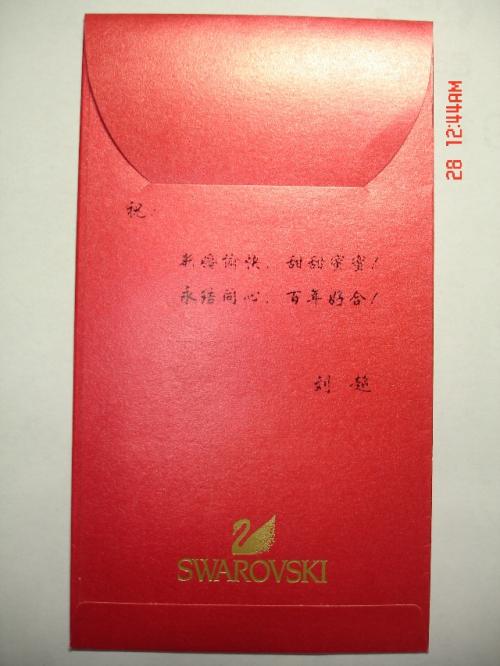 祝:
新婚愉快、甜甜蜜蜜!
永结同心、百年好合!
刘 超
SWAROVSKI
28 12:44AM